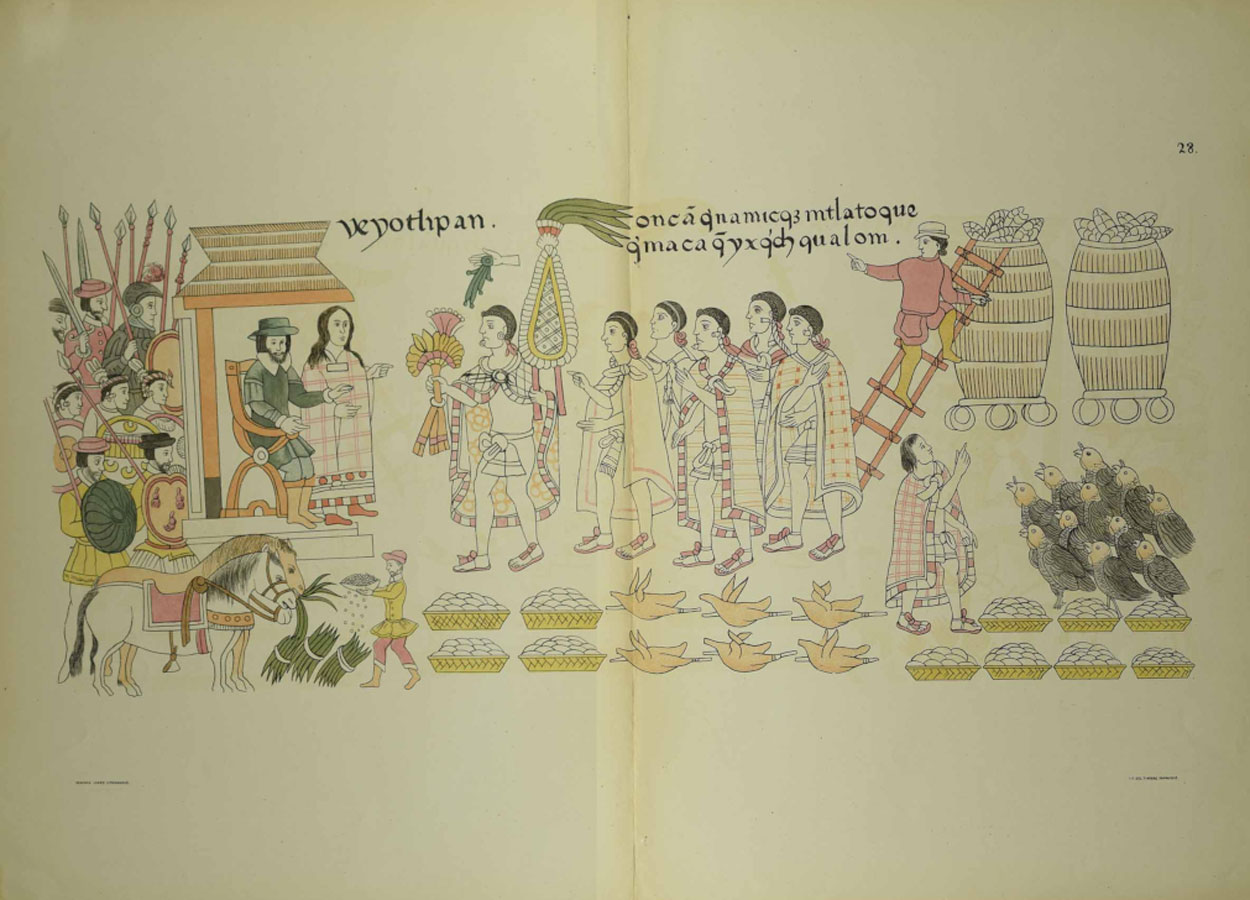 28.
Veyotlipan.
oncã q̃namicqȝ intlatoque
q̃maca q̃yxq̃ch qualom.